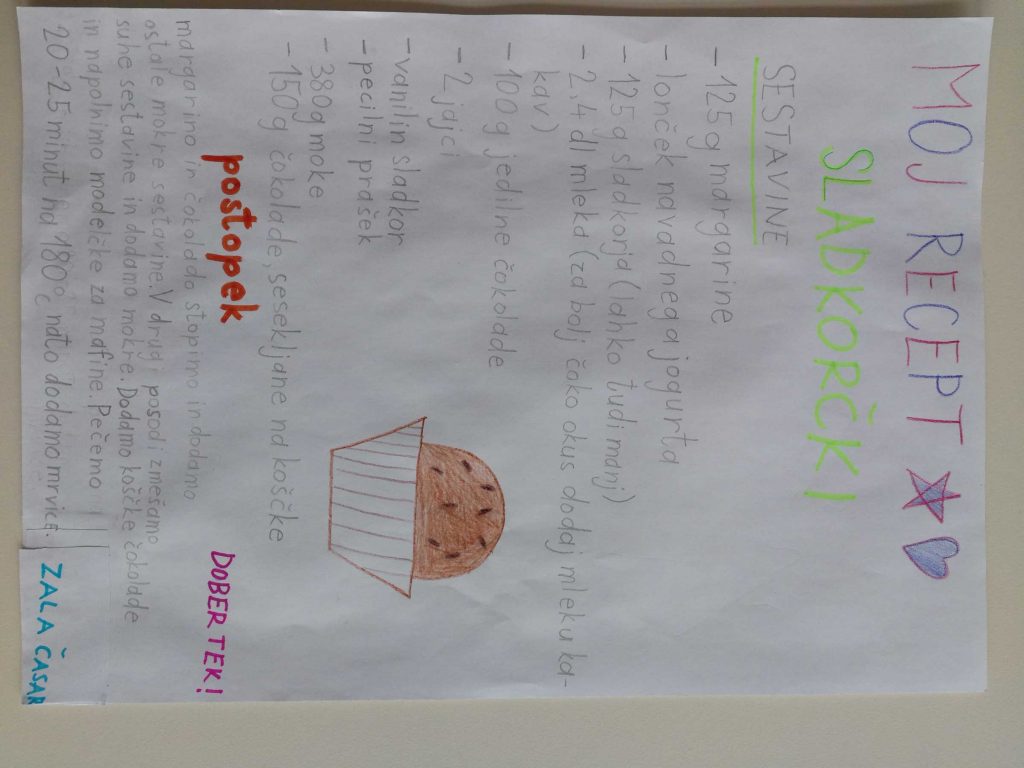 MOJ RECEPT
SLADKORČKI
SESTAVINE
- 125g margarine
- lonček navadnega jogurta
- 125g sladkorja (lahko tudi manj)
- 2,4 dl mleka (za bolj čoko okus dodaj mleku ka-
kav)
- 100g jedilne čokolade
- 2 jajci
- vanilin sladkor
- pecilni prašek
- 380g moke
- 150g čokolade, sesekljane na koščke
postopek
DOBER TEK!
margarino in čokolado stopimo in dodamo
ostale mokre sestavine. V drugi posodi zmešamo
suhe sestavine in dodamo mokre. Dodamo koščke čokolade
in napolnimo modelčke za mafine. Pečemo
20-25 minut na 180°C nato dodamo mrvice.
ZALA ČASAR